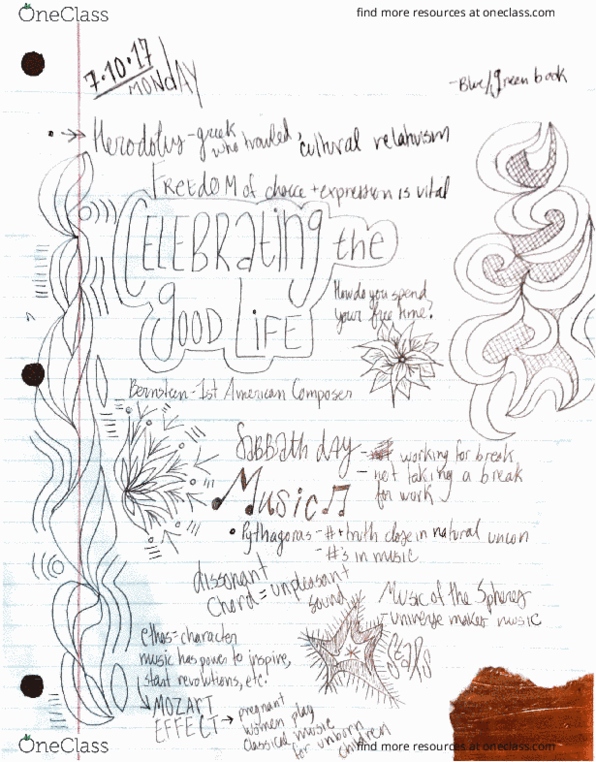 OneClass
find more resources at oneclass.com
7.10.17
MONdAY
-Blue/green book
Herodotus-greek who travled, cultural relativism
FREEdOM of choice + expression is vital
CELEBRATING the
good LIFE
How do you spend
your free time?
Bernstein-1st American Composer
Sabbath day - working for break
- not taking a break
for work
Music
• Pythagoras - #+truth close in natural
- #'s in music
dissonant
Chord = unpleasant
sound
Music of the Spheres
- universe makes music
stars
ethos=character
music has power to inspire,
start revolutions, etc.
MOZART
EFFECT → pregnant
women play
classical music
for unborn
children
OneClass
find more resources at oneclass.com